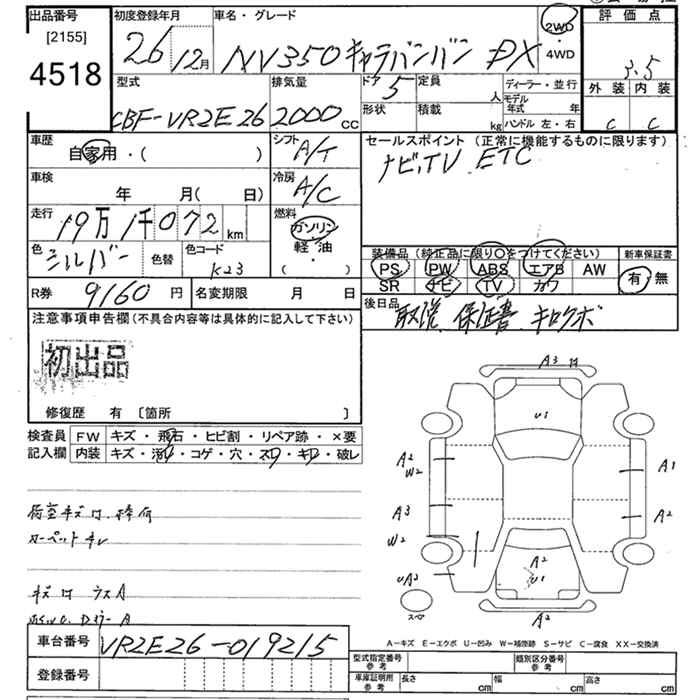 出品番号
[2155]
4518
初度登録年月
26 12月
車名・グレード
NV350キャラバンバン DX
2WD
・
4WD
評価点
3.5
外装 内装
C C
型式
CBF-VR2E26
排気量
2000 CC
ドア 5
形状
定員 人
積載 kg
ディーラー・並行
モデル年式 年
ハンドル 左・右
車歴
自家用・( )
シフト
A/T
車検
年 月( 日)
冷房
A/C
走行
19万1千072 km
燃料
ガソリン
・
軽油
( )
色
シルバー
色替
色コード
K23
セールスポイント (正常に機能するものに限ります)
ナビ,TV ETC
装備品 (純正品に限り○をつけてください)
PS PW ABS エアB AW
SR ナビ TV カワ
新車保証書
有・無
R券 9160 円
名変期限 月 日
後日品
取説 保証書 キロクボ
注意事項申告欄 (不具合内容等は具体的に記入して下さい)
初出品
修復歴 有 〔箇所 〕
検査員
記入欄
FW キズ・飛石・ヒビ割・リペア跡・×要
内装 キズ・汚れ・コゲ・穴・スレ・キレ・破レ
カーペットキレ
A3
U1
A2
W2
A1
A3
A2
W2
A2
UA2
U1
A2
スペア
A-キズ E-エクボ U-凹み W-補修跡 S-サビ C-腐食 XX-交換済
車台番号 VR2E26-019215
登録番号
型式指定番号
参考
類別区分番号
参考
車庫証明用
参考
長さ cm 幅 cm 高さ cm